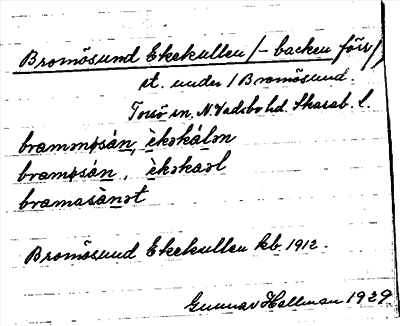 Bromösund Ekekullen /- backen förr/,
st. under / Bromösund.
Torsö sn. N. Vadsbo hd. Skarab. l.
brammøsán, èkəkálən
bramøsán, èkəkaəl
bramasànət
Bromösund Ekekullen kb. 1912.
Gunnar Hallman 1929